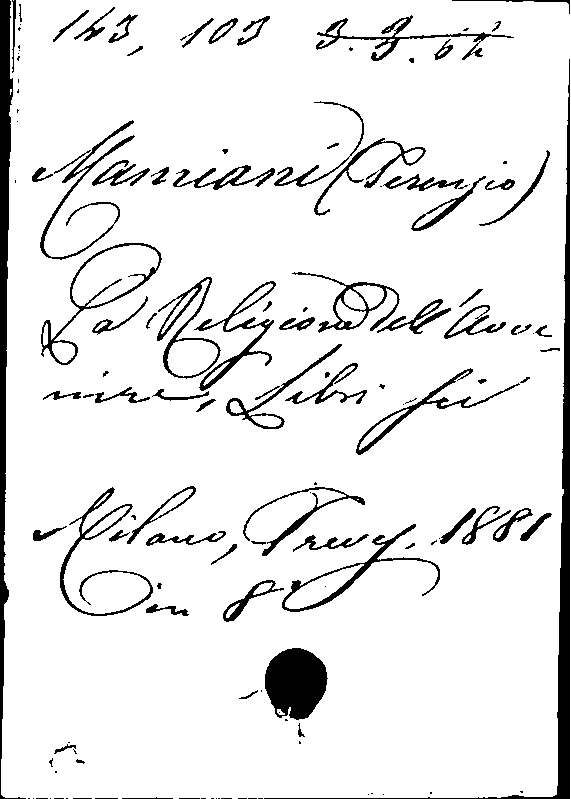 143, 103 3. 3. 6
Mamiani (Terenzio)
La Religione dell'Avve-
nire, Libri sei
Milano, Treves, 1881
in 8°